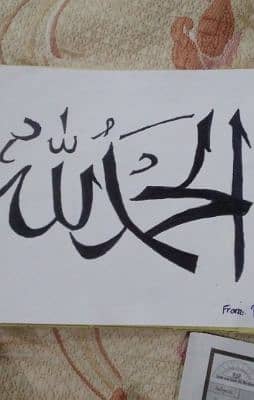 الحمد لله
From: